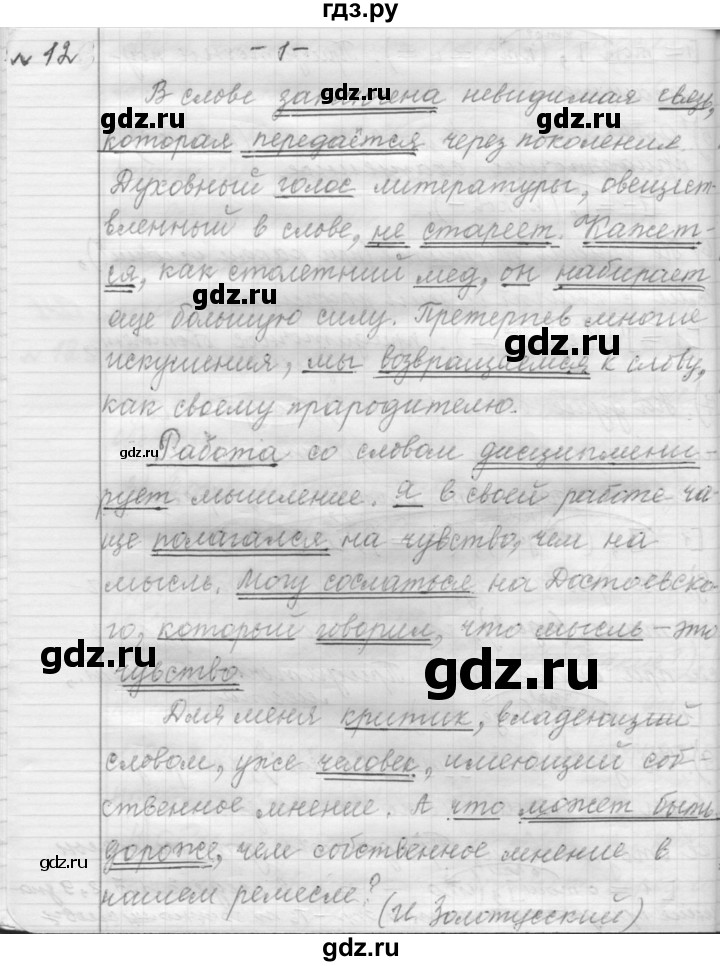 гдз.ру
№ 12 - 1 -
В слове заключена невидимая связь,
которая передаётся через поколения.
Духовный голос литературы, овещест-
вленный в слове, не стареет. Кажет-
ся, как столетний мед, он набирает
еще большую силу. Претерпев многие
искушения, мы возвращаемся к слову,
как своему прародителю.
Работа со словом дисциплини-
рует мышление. Я в своей работе ча-
ще полагался на чувство, чем на
мысль. Могу сослаться на Достоевско-
го, который говорил, что мысль - это
чувство.
Для меня критик, владеющий
словом, уже человек, имеющий соб-
ственное мнение. А что может быть
дороже, чем собственное мнение в
нашем ремесле?
(И. Золотусский)
gdz.ru
gdz.ru
gdz.ru
gdz.ru
gdz.ru
gdz.ru
gdz.ru
gdz.ru
gdz.ru
gdz.ru
gdz.ru